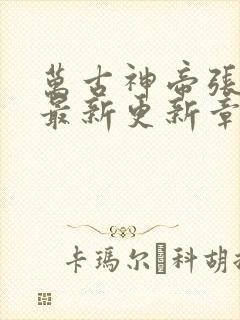 萬古神帝張
最新更新章
卡瑪尔科胡